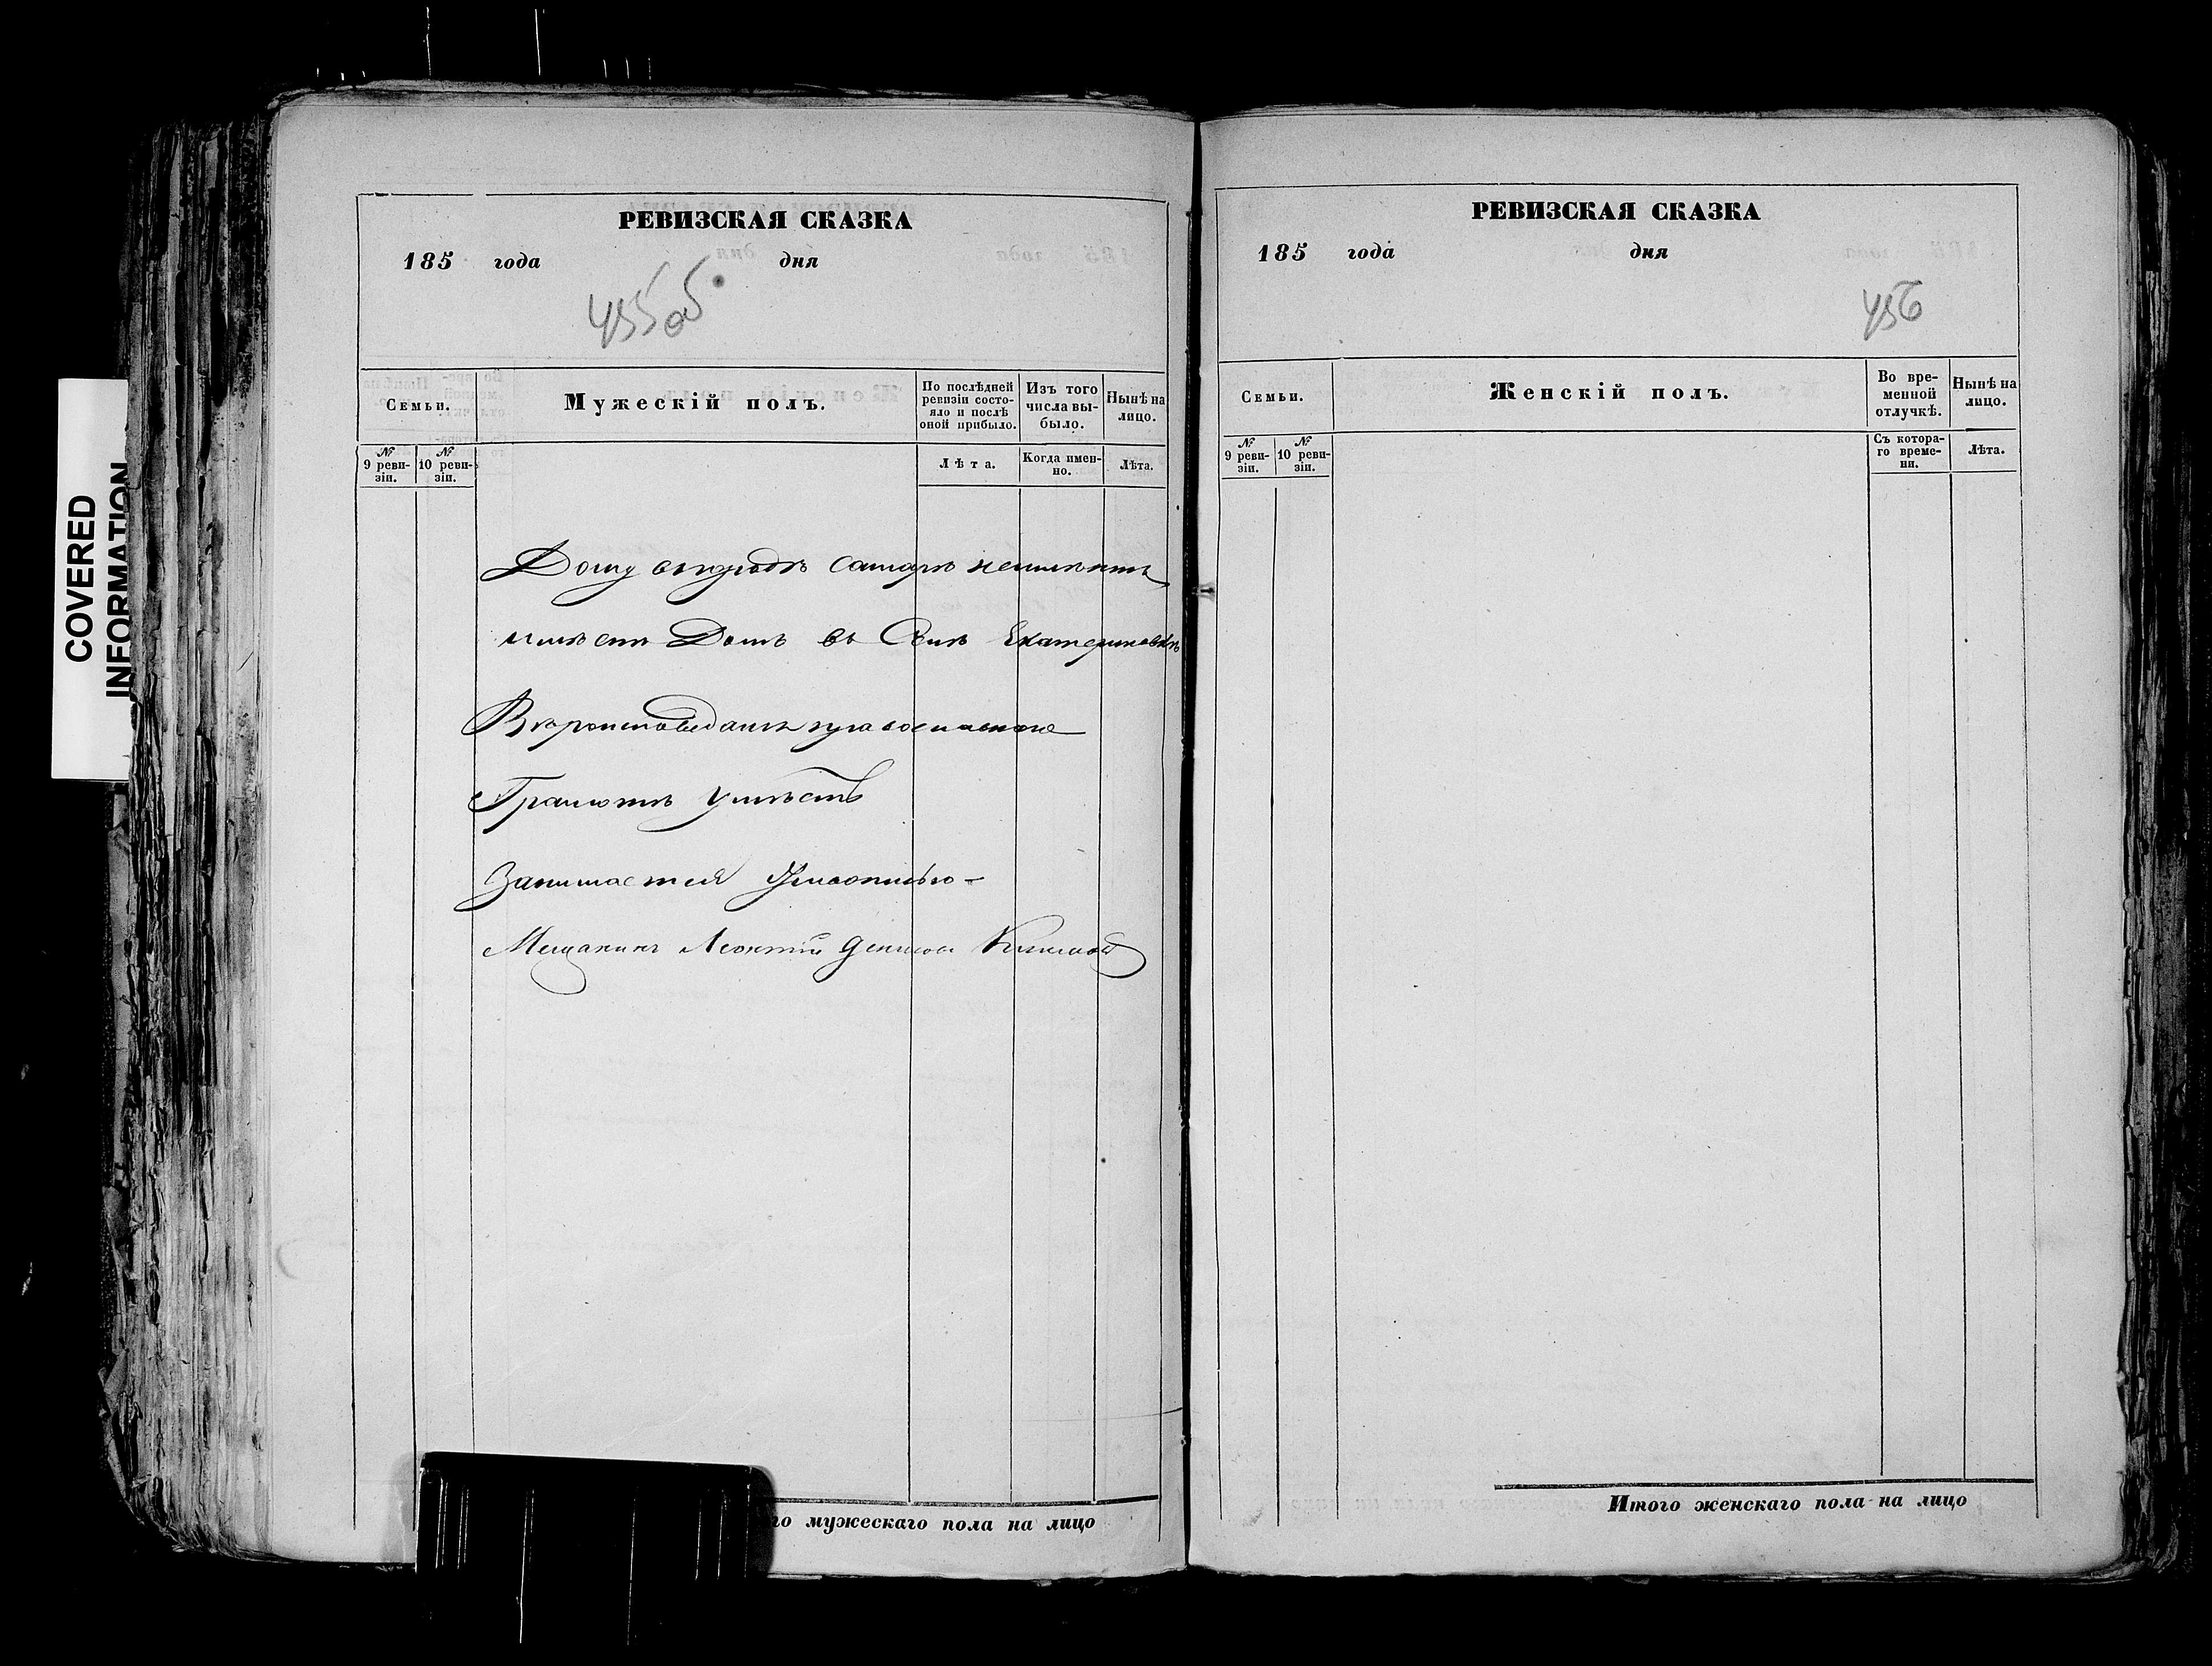 COVERED
INFORMATION
РЕВИЗСКАЯ СКАЗКА
185 года дня
455об
Семьи.
Мужескій полъ.
По послѣдней ревизіи состояло и послѣ оной прибыло.
Изъ того числа выбыло.
Нынѣ на лицо.
№ 9 ревизіи.
№ 10 ревизіи.
Лѣта.
Когда именно.
Лѣта.
Дому въ городѣ Самарѣ неимѣитъ
имѣетъ Домъ въ Селѣ Екатериновкѣ
Вѣроисповеданія православнаго
Грамотѣ умѣетъ
Занимается Живописью-
Мещанинъ Леонтій Денисов
го мужескаго пола на лицо
РЕВИЗСКАЯ СКАЗКА
185 года дня
456
Семьи.
Женскій полъ.
Во временной отлучкѣ.
Нынѣ на лицо.
№ 9 ревизіи.
№ 10 ревизіи.
Съ котораго времени.
Лѣта.
Итого женскаго пола на лицо